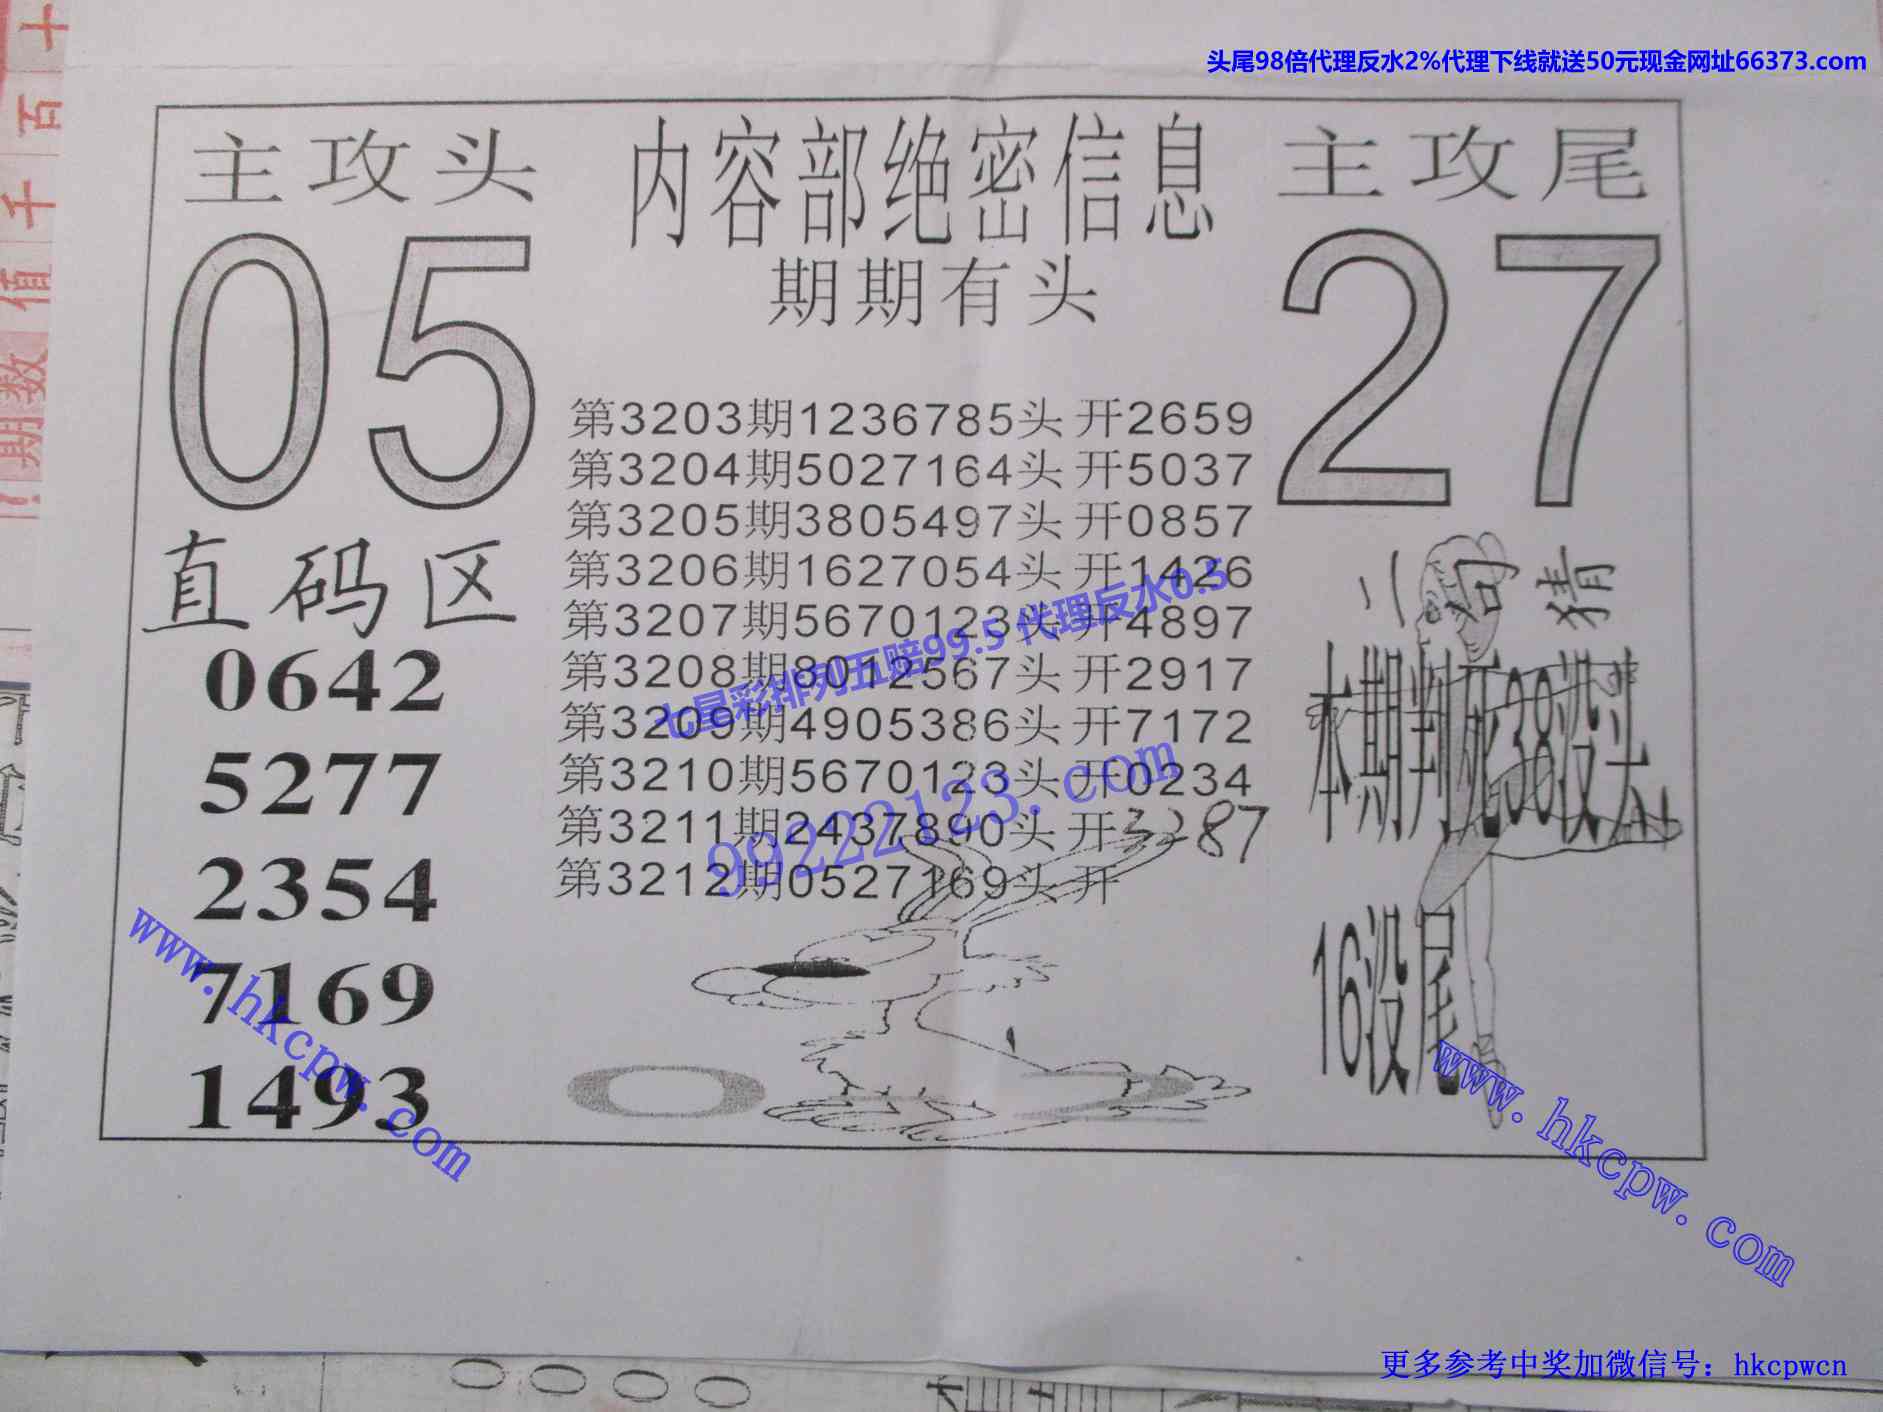 头尾98倍代理反水2%代理下线就送50元现金网址66373.com
十
百
千
值
数
期
主攻头
内容部绝密信息
主攻尾
05
期期有头
27
第3203期1236785头 开2659
第3204期5027164头 开5037
第3205期3805497头 开0857
第3206期1627054头 开1426
第3207期5670123头 开4897
第3208期8012567头 开2917
第3209期4905386头 开7172
第3210期5670123头 开0234
第3211期2437890头 开3287
第3212期0527169头 开
七星彩排列五赔99.5 代理反水0.5
99222123.com
直码区
0642
5277
2354
7169
1493
二句猜
本期判死38没头
16没尾
www.hkcpw.com
www.hkcpw.com
0000
更多参考中奖加微信号：hkcpwcn